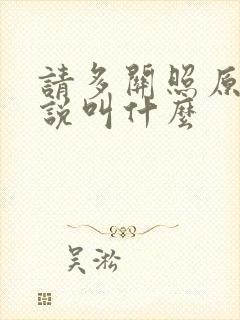 請多關照原
說叫什麼
吴淞